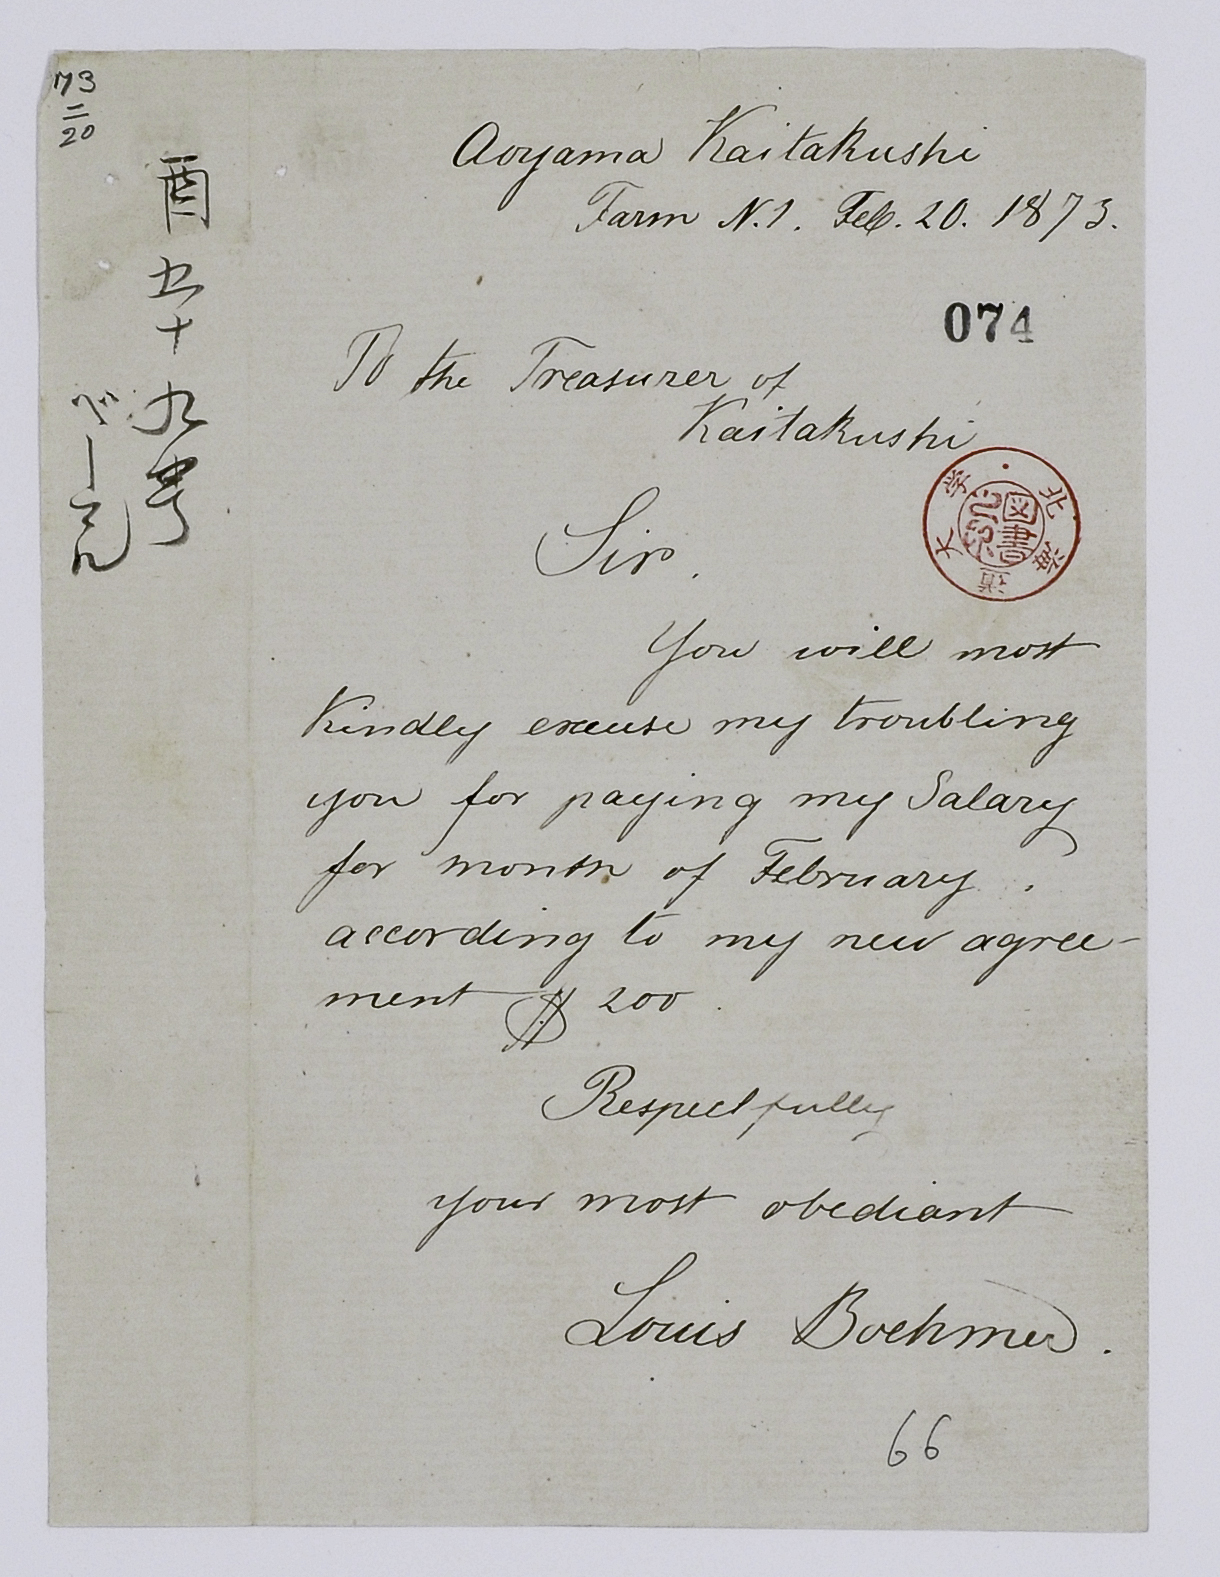 73
二
20
酉五十九号
Aoyama Kaitakushi
Farm N.1. Feb. 20. 1873.
074
To the Treasurer of
Kaitakushi
北海道大学
図書
Sir.
You will most
Kindly excuse my troubling
you for paying my Salary
for month of February.
according to my new agree-
ment $ 200.
Respectfully
your most obediant
Louis Boehmer.
66